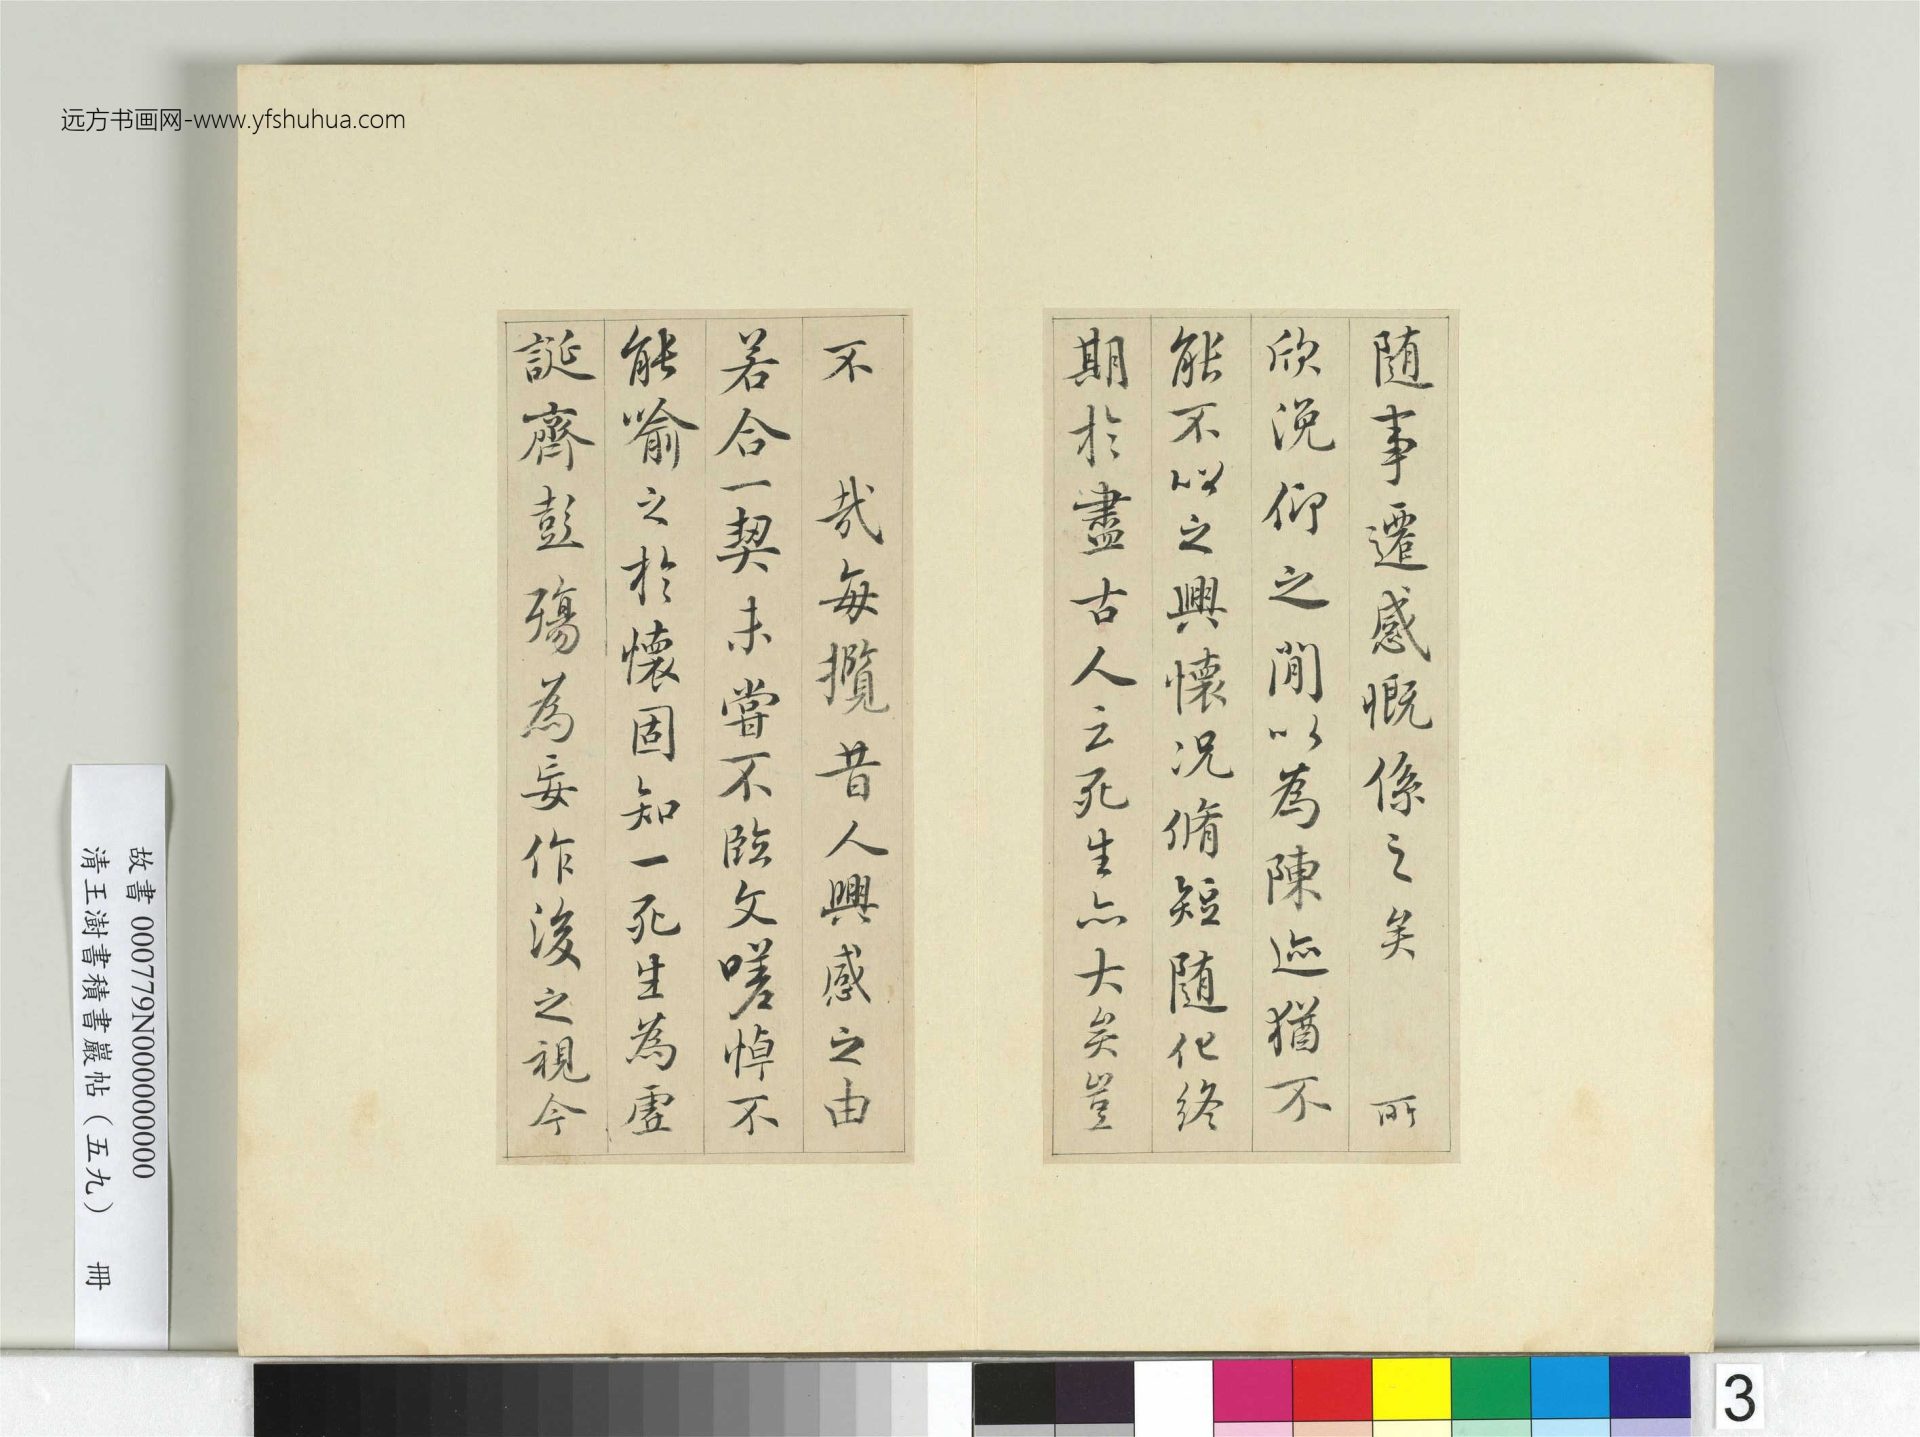 远方书画网-www.yfshuhua.com
随事遷感慨係之矣 所
欣俛仰之閒以為陳迹猶不
能不以之興懷況脩短随化終
期於盡古人云死生亦大矣豈
不 哉每攬昔人興感之由
若合一契未嘗不臨文嗟悼不
能喻之於懷固知一死生為虛
誕齊彭殤為妄作後之視今
故書 000779N000000000
清王澍書積書巖帖（五九） 冊
3